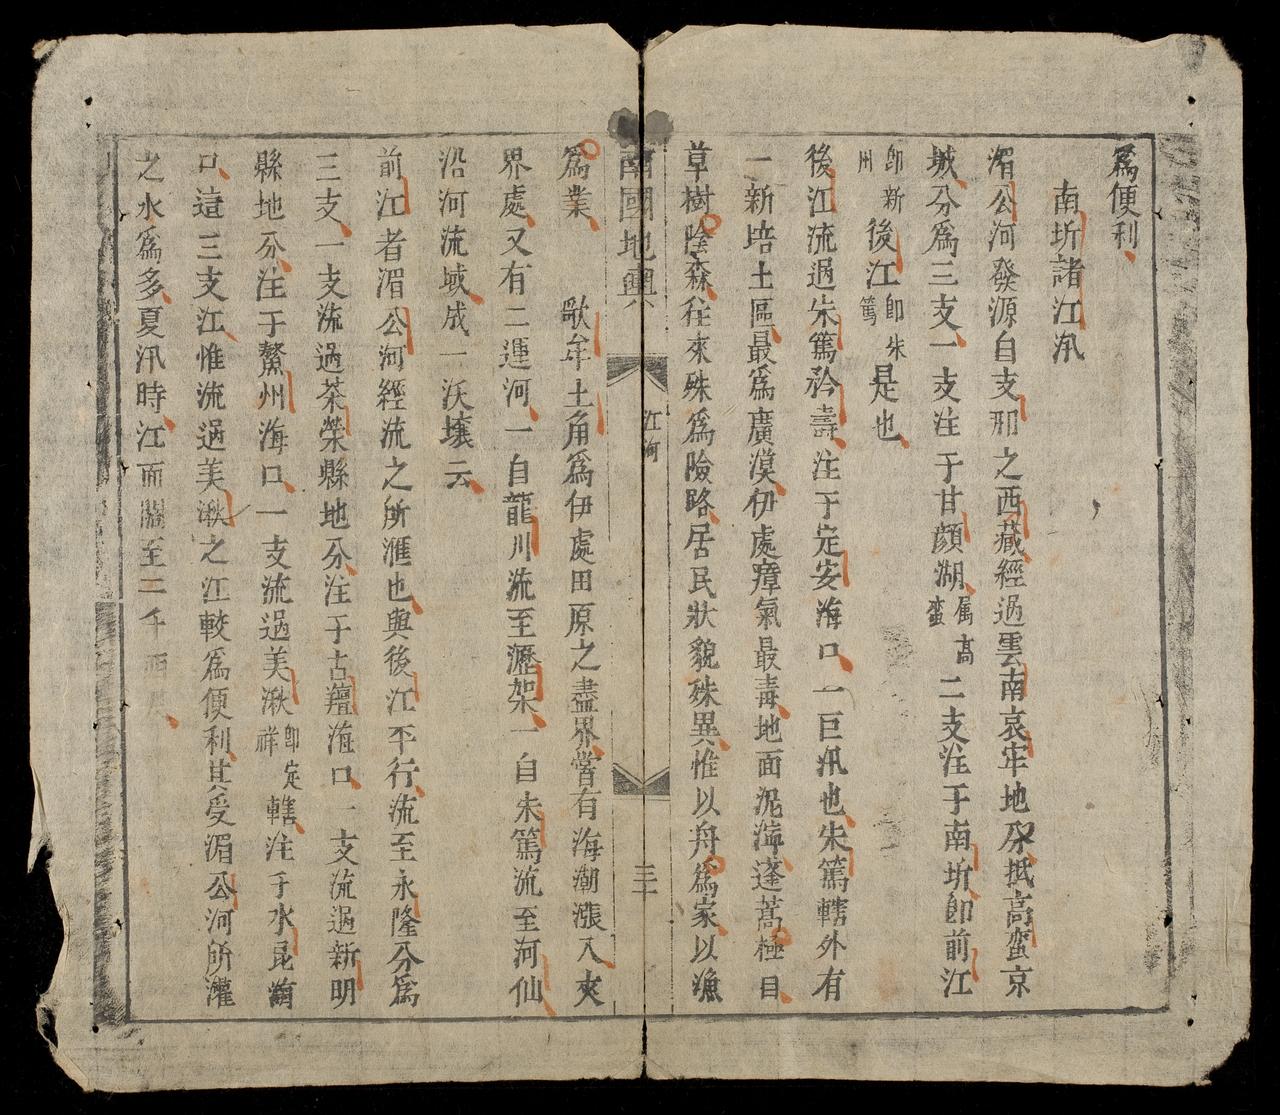 爲便利
南圻諸江汛
湄公河發源自支那之西藏經過雲南哀牢地分抵高蠻京
城分爲三支一支注于甘顏湖属高蠻二支注于南圻卽前江
卽新州後江卽朱篤是也
後江流過朱篤矜壽注于定安海口一巨汛也朱篤轄外有
一新培土區最爲廣漠伊處瘴氣最毒地面泥濘蓬蒿極目
草樹陰森往來殊爲險路居民狀貌殊異惟以舟爲家以漁
南國地輿 江河 三十
爲業 歌牟土角爲伊處田原之盡界嘗有海潮漲入夾
界處又有二運河一自龍川流至瀝架一自朱篤流至河仙
沿河流域成一沃壤云
前江者湄公河經流之所滙也與後江平行流至永隆分爲
三支一支流過茶榮縣地分注于古䆄海口一支流過新明
縣地分注于鰲州海口一支流過美湫卽定祥轄注于水昆
口這三支江惟流過美湫之江較爲便利其受湄公河所灌
之水爲多夏汛時江面濶至二千西